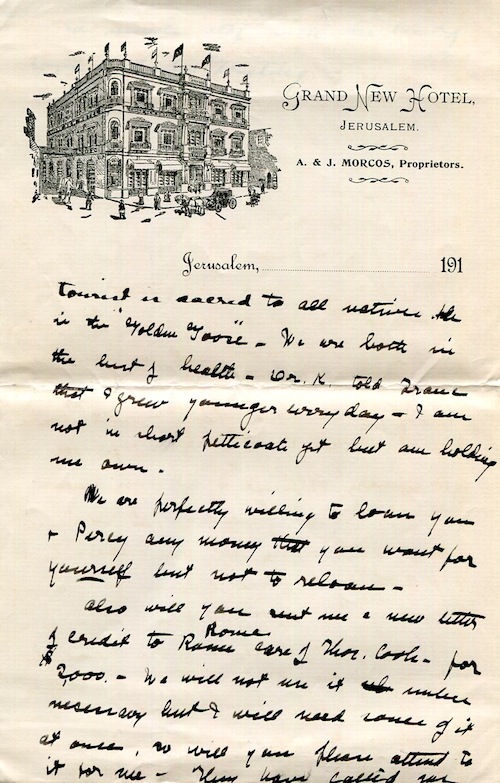 GRAND NEW HOTEL,
JERUSALEM.
A. & J. MORCOS, Proprietors.
Jerusalem, 191
tourist is sacred to all natives he
is the "Golden Goose" - We are both in
the best of health - Dr. K. told
that I grew younger every day - I am
not in short petticoats yet but am holding
my own.
We are perfectly willing to loan you
+ Percy any money that you want for
yourself but not to reloan -
Also will you send me a new letter
Rome
of credit to Rome care of Thos. Cook - for
$2,000. - We will not use it unless
necessary but I will need some of it
at once, so will you please attend to
it for me - They have called